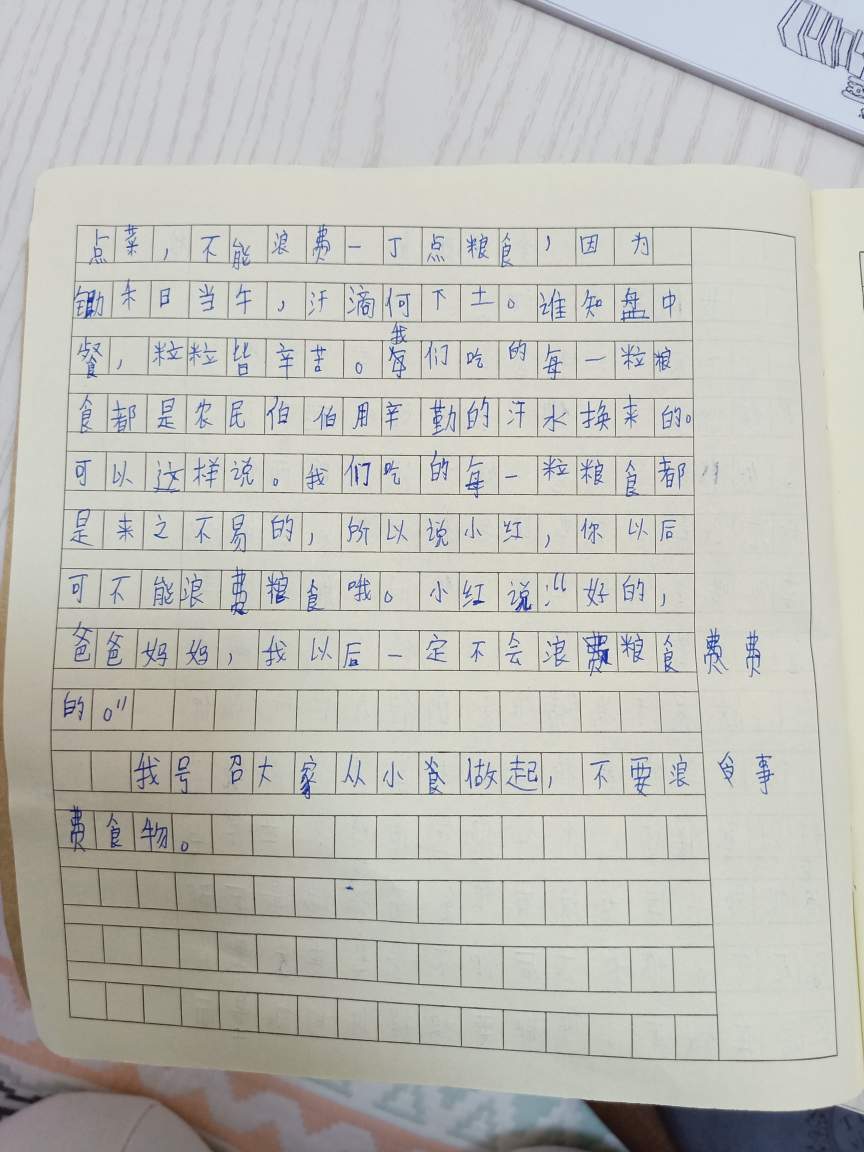 点菜，不能浪费一丁点粮食，因为
锄禾日当午，汗滴何下土。谁知盘中
餐，粒粒皆辛苦。我们吃的每一粒粮
食都是农民伯伯用辛勤的汗水换来的。
可以这样说。我们吃的每一粒粮食都
是来之不易的，所以说小红，你以后
可不能浪费粮食哦。小红说：“好的，
爸爸妈妈，我以后一定不会浪费粮食 费费
的。”
我号召大家从小食做起，不要浪 食事
费食物。